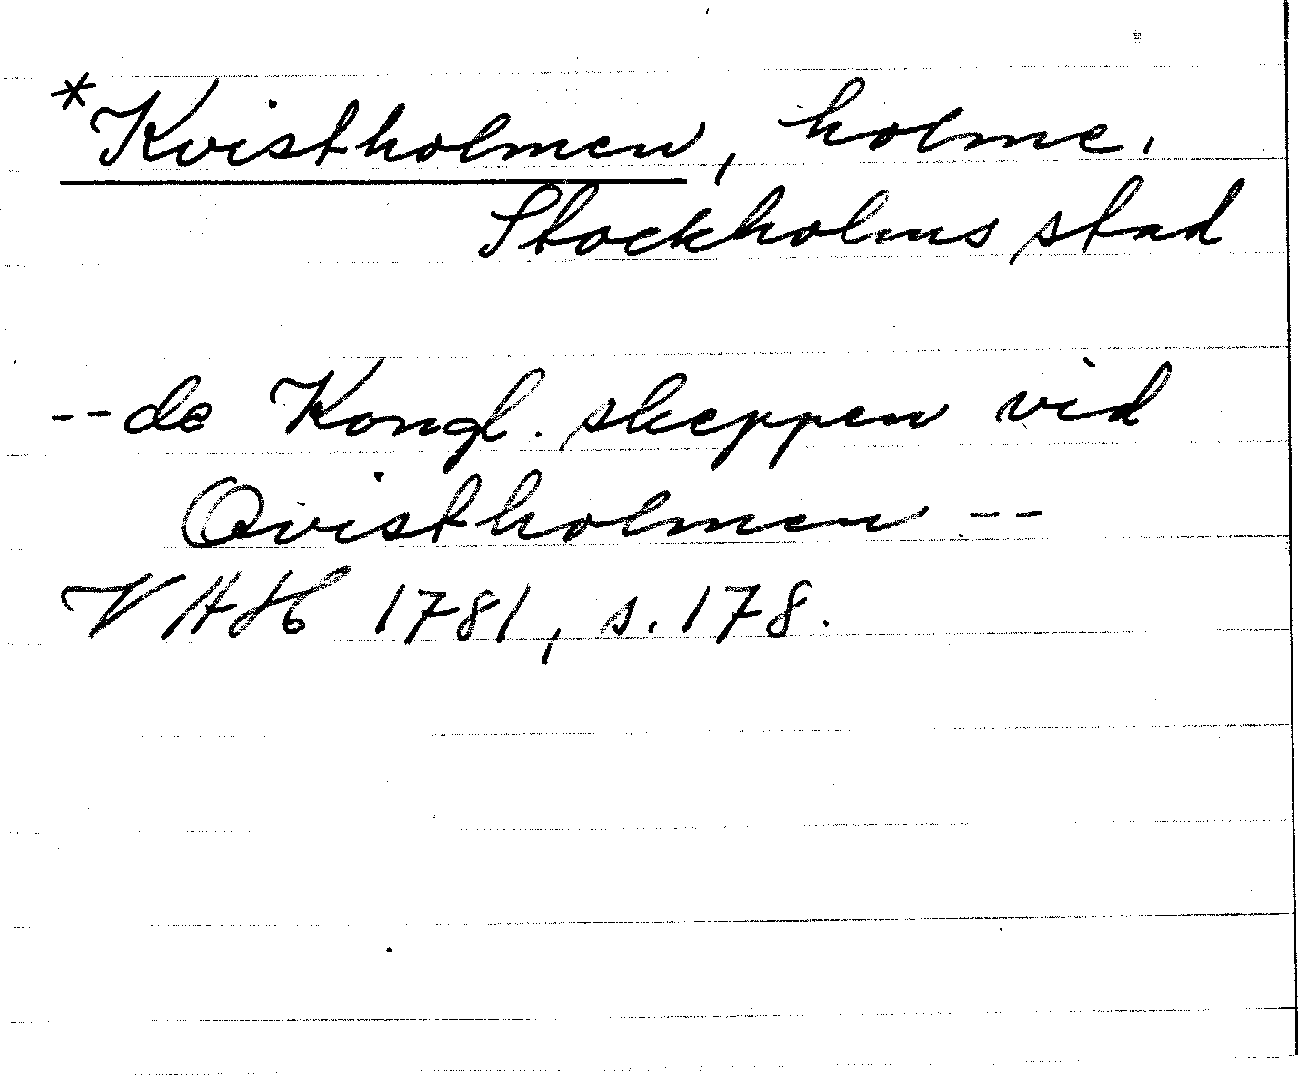 *Kvistholmen, holme.
Stockholms stad
--de Kongl. skeppen vid
Qvistholmen --
VAH 1781, s. 178.